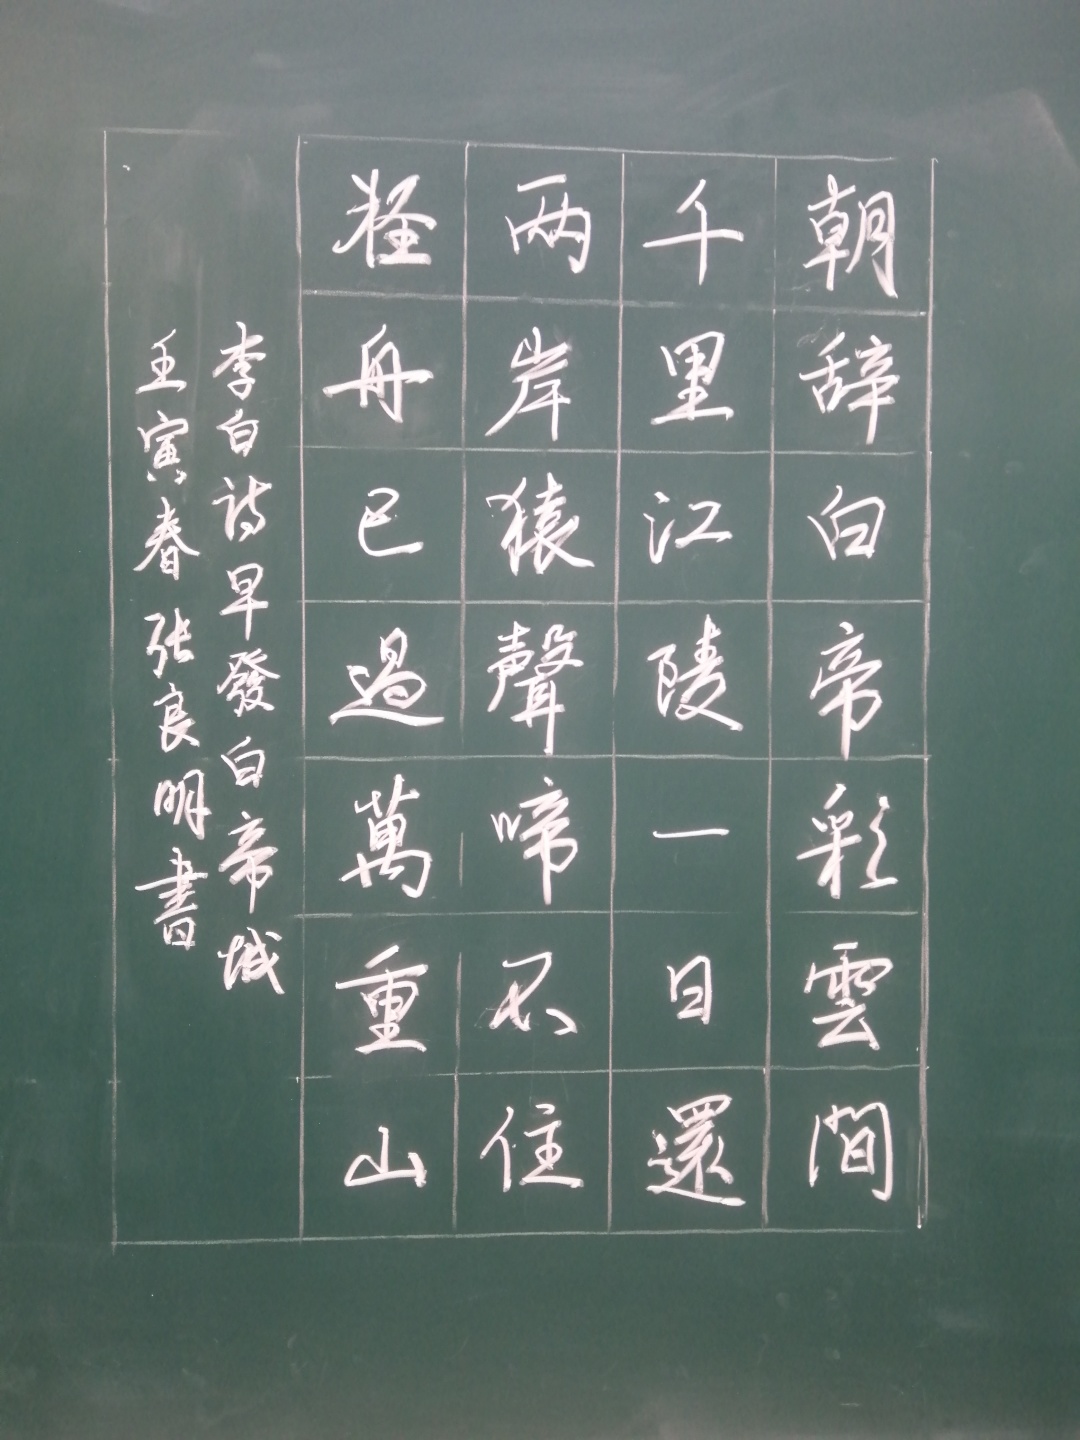 朝辞白帝彩雲間
千里江陵一日還
两岸猿聲啼不住
轻舟已過萬重山
李白诗早發白帝城
壬寅春张良明書